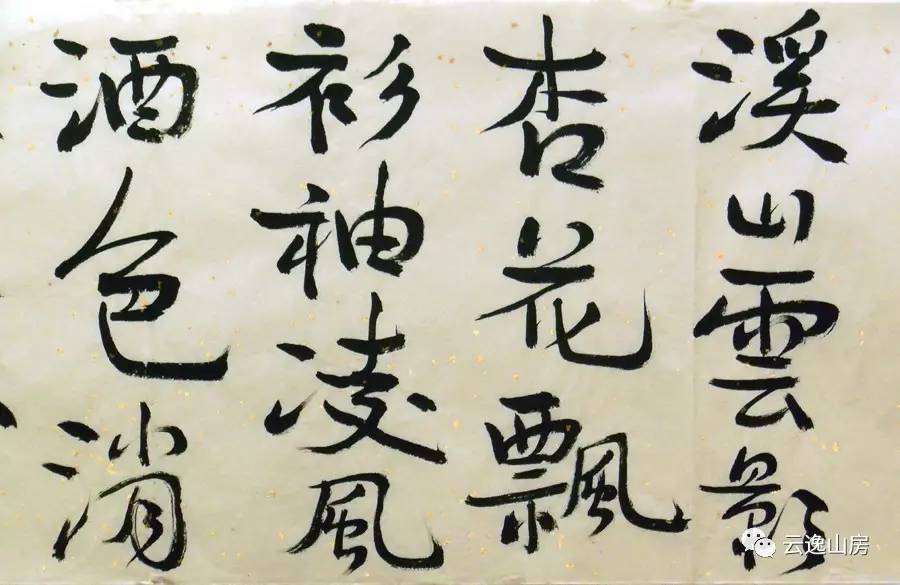 溪山雲影
杏花飄
衫袖凌風
酒色消
云逸山房